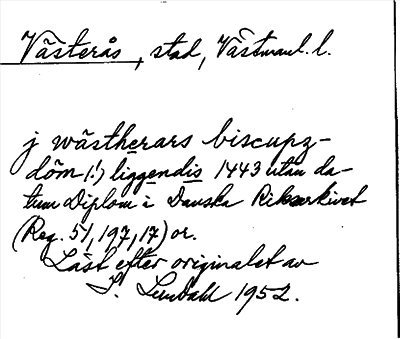 Västerås, stad, Västmanl. l.
j wästherars biscupz-
döm (!) liggendis 1443 utan da-
tum Diplom i Danska Riksarkivet
(Reg. 51, 197, 17) or.
Läst efter originalet av
S. Lundahl 1952.